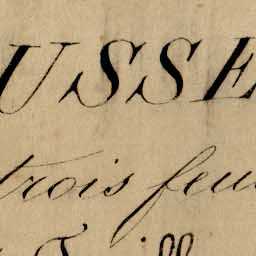 USSE
trois feu